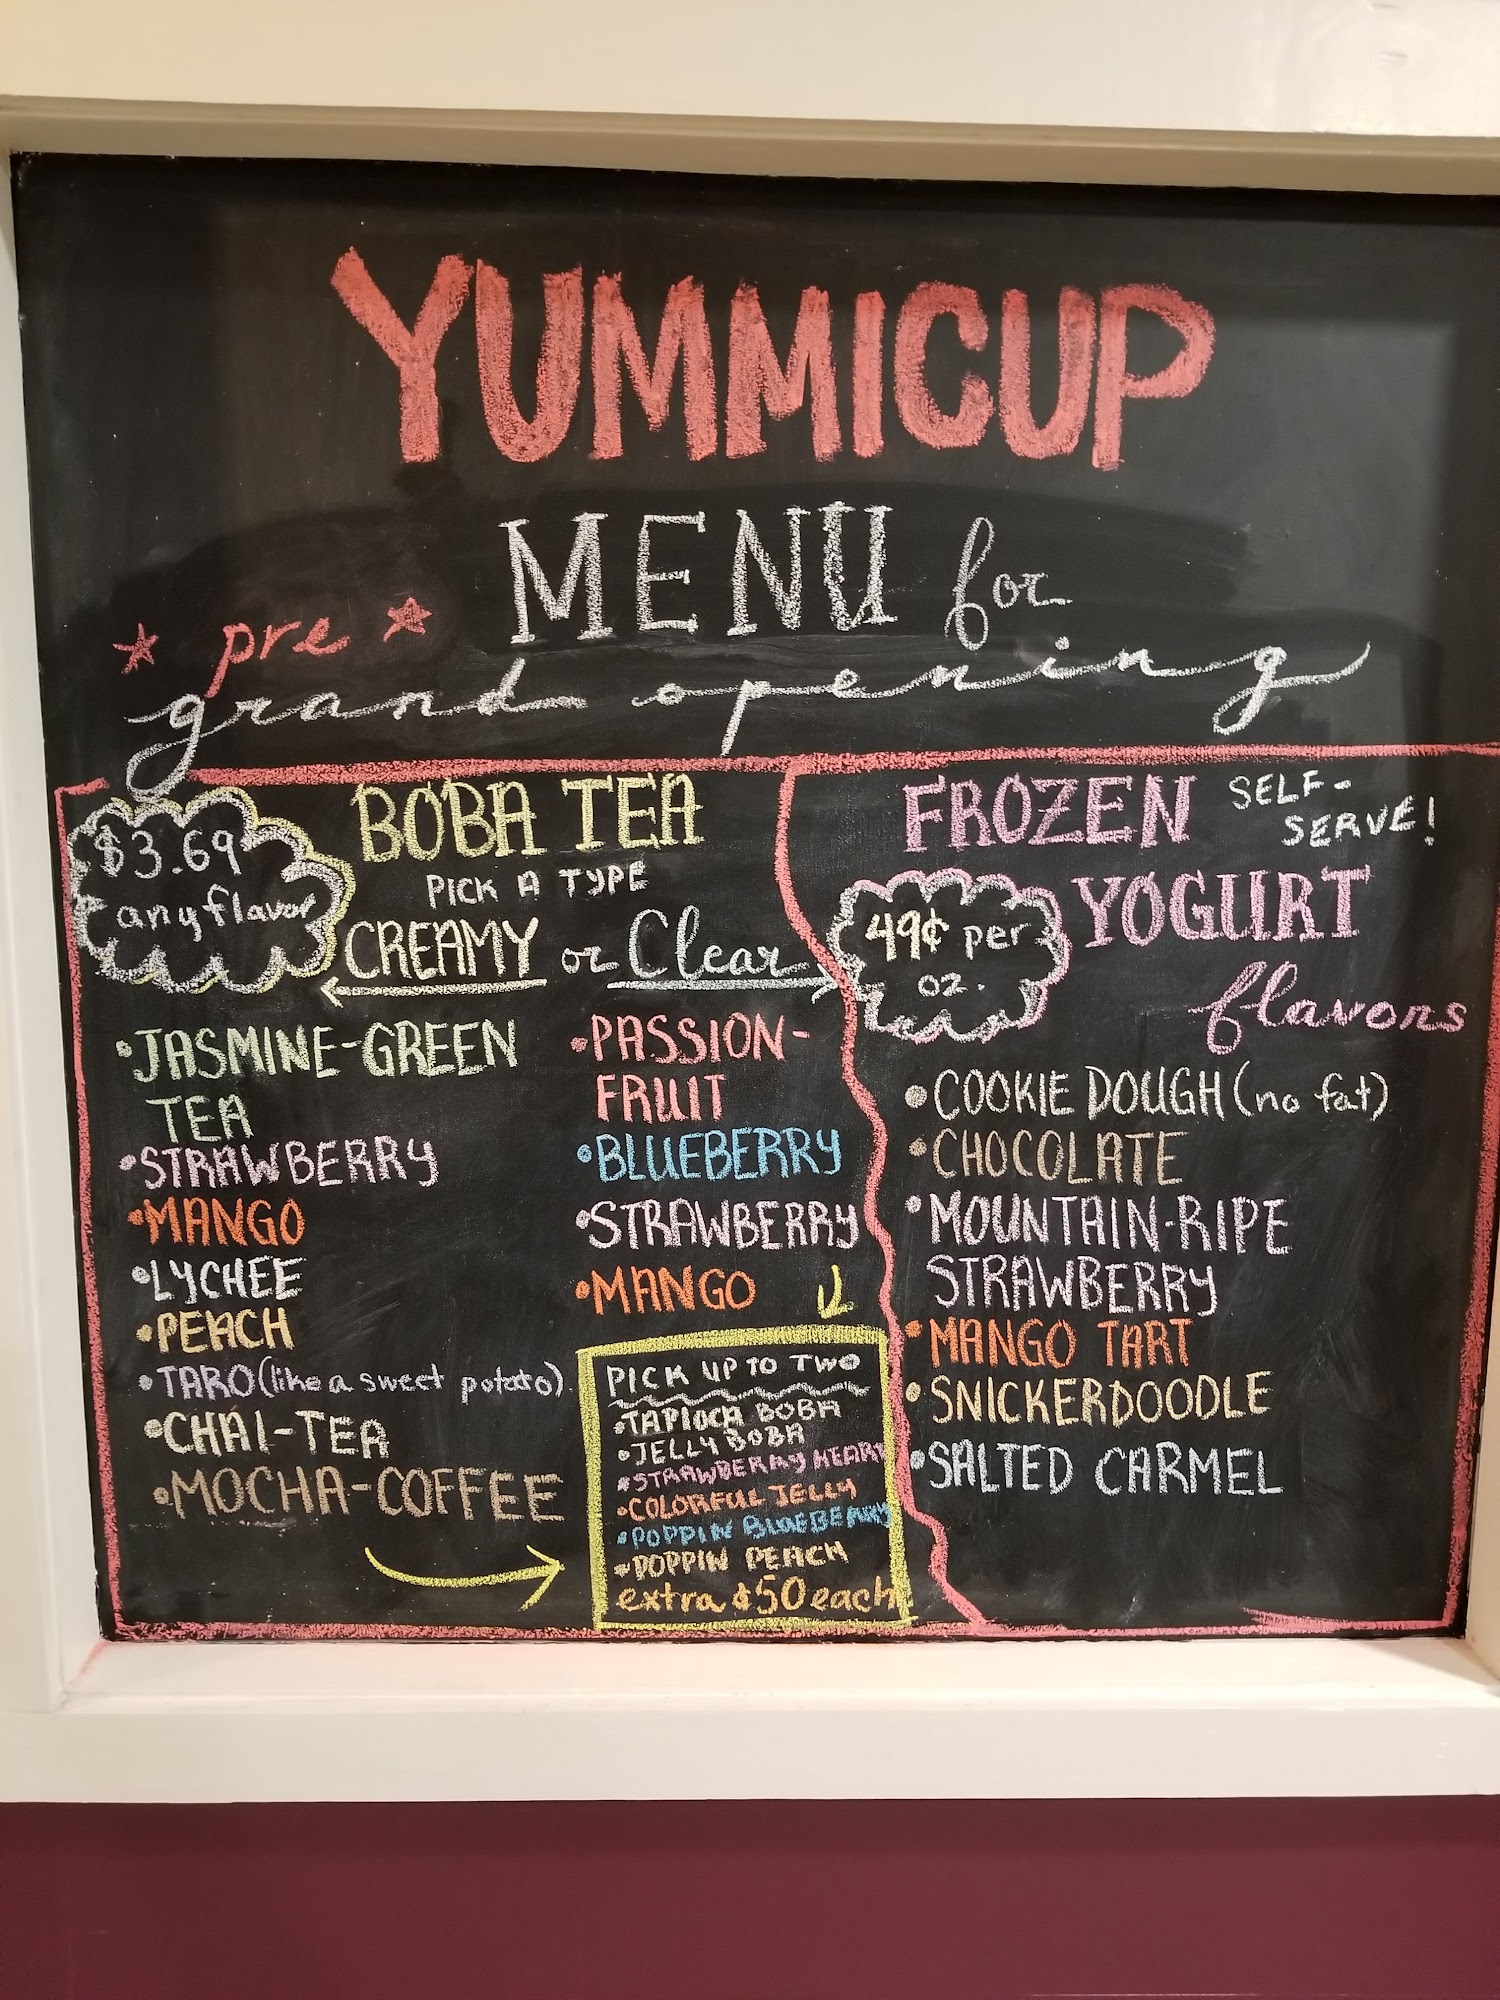 YUMMICUP
MENU for
* pre *
grand opening
$3.69
any flavor
BOBA TEA
PICK A TYPE
CREAMY or Clear
•JASMINE-GREEN
TEA
•STRAWBERRY
•MANGO
•LYCHEE
•PEACH
•TARO (like a sweet potato)
•CHAI-TEA
•MOCHA-COFFEE
•PASSION-
FRUIT
•BLUEBERRY
•STRAWBERRY
•MANGO
PICK UP TO TWO
•TAPIOCA BOBA
•JELLY BOBA
•STRAWBERRY HEART
•COLORFUL JELLY
•POPPIN BLUEBERRY
•POPPIN PEACH
extra $50 each
FROZEN
SELF-
SERVE!
YOGURT
49¢ per
oz.
flavors
•COOKIE DOUGH (no fat)
•CHOCOLATE
•MOUNTAIN-RIPE
STRAWBERRY
•MANGO TART
•SNICKERDOODLE
•SALTED CARMEL